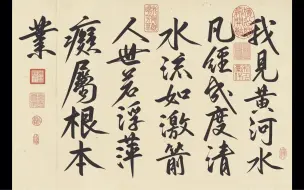 我見黃河水
凡經幾度清
水流如激箭
人世若浮萍
癡屬根本
業